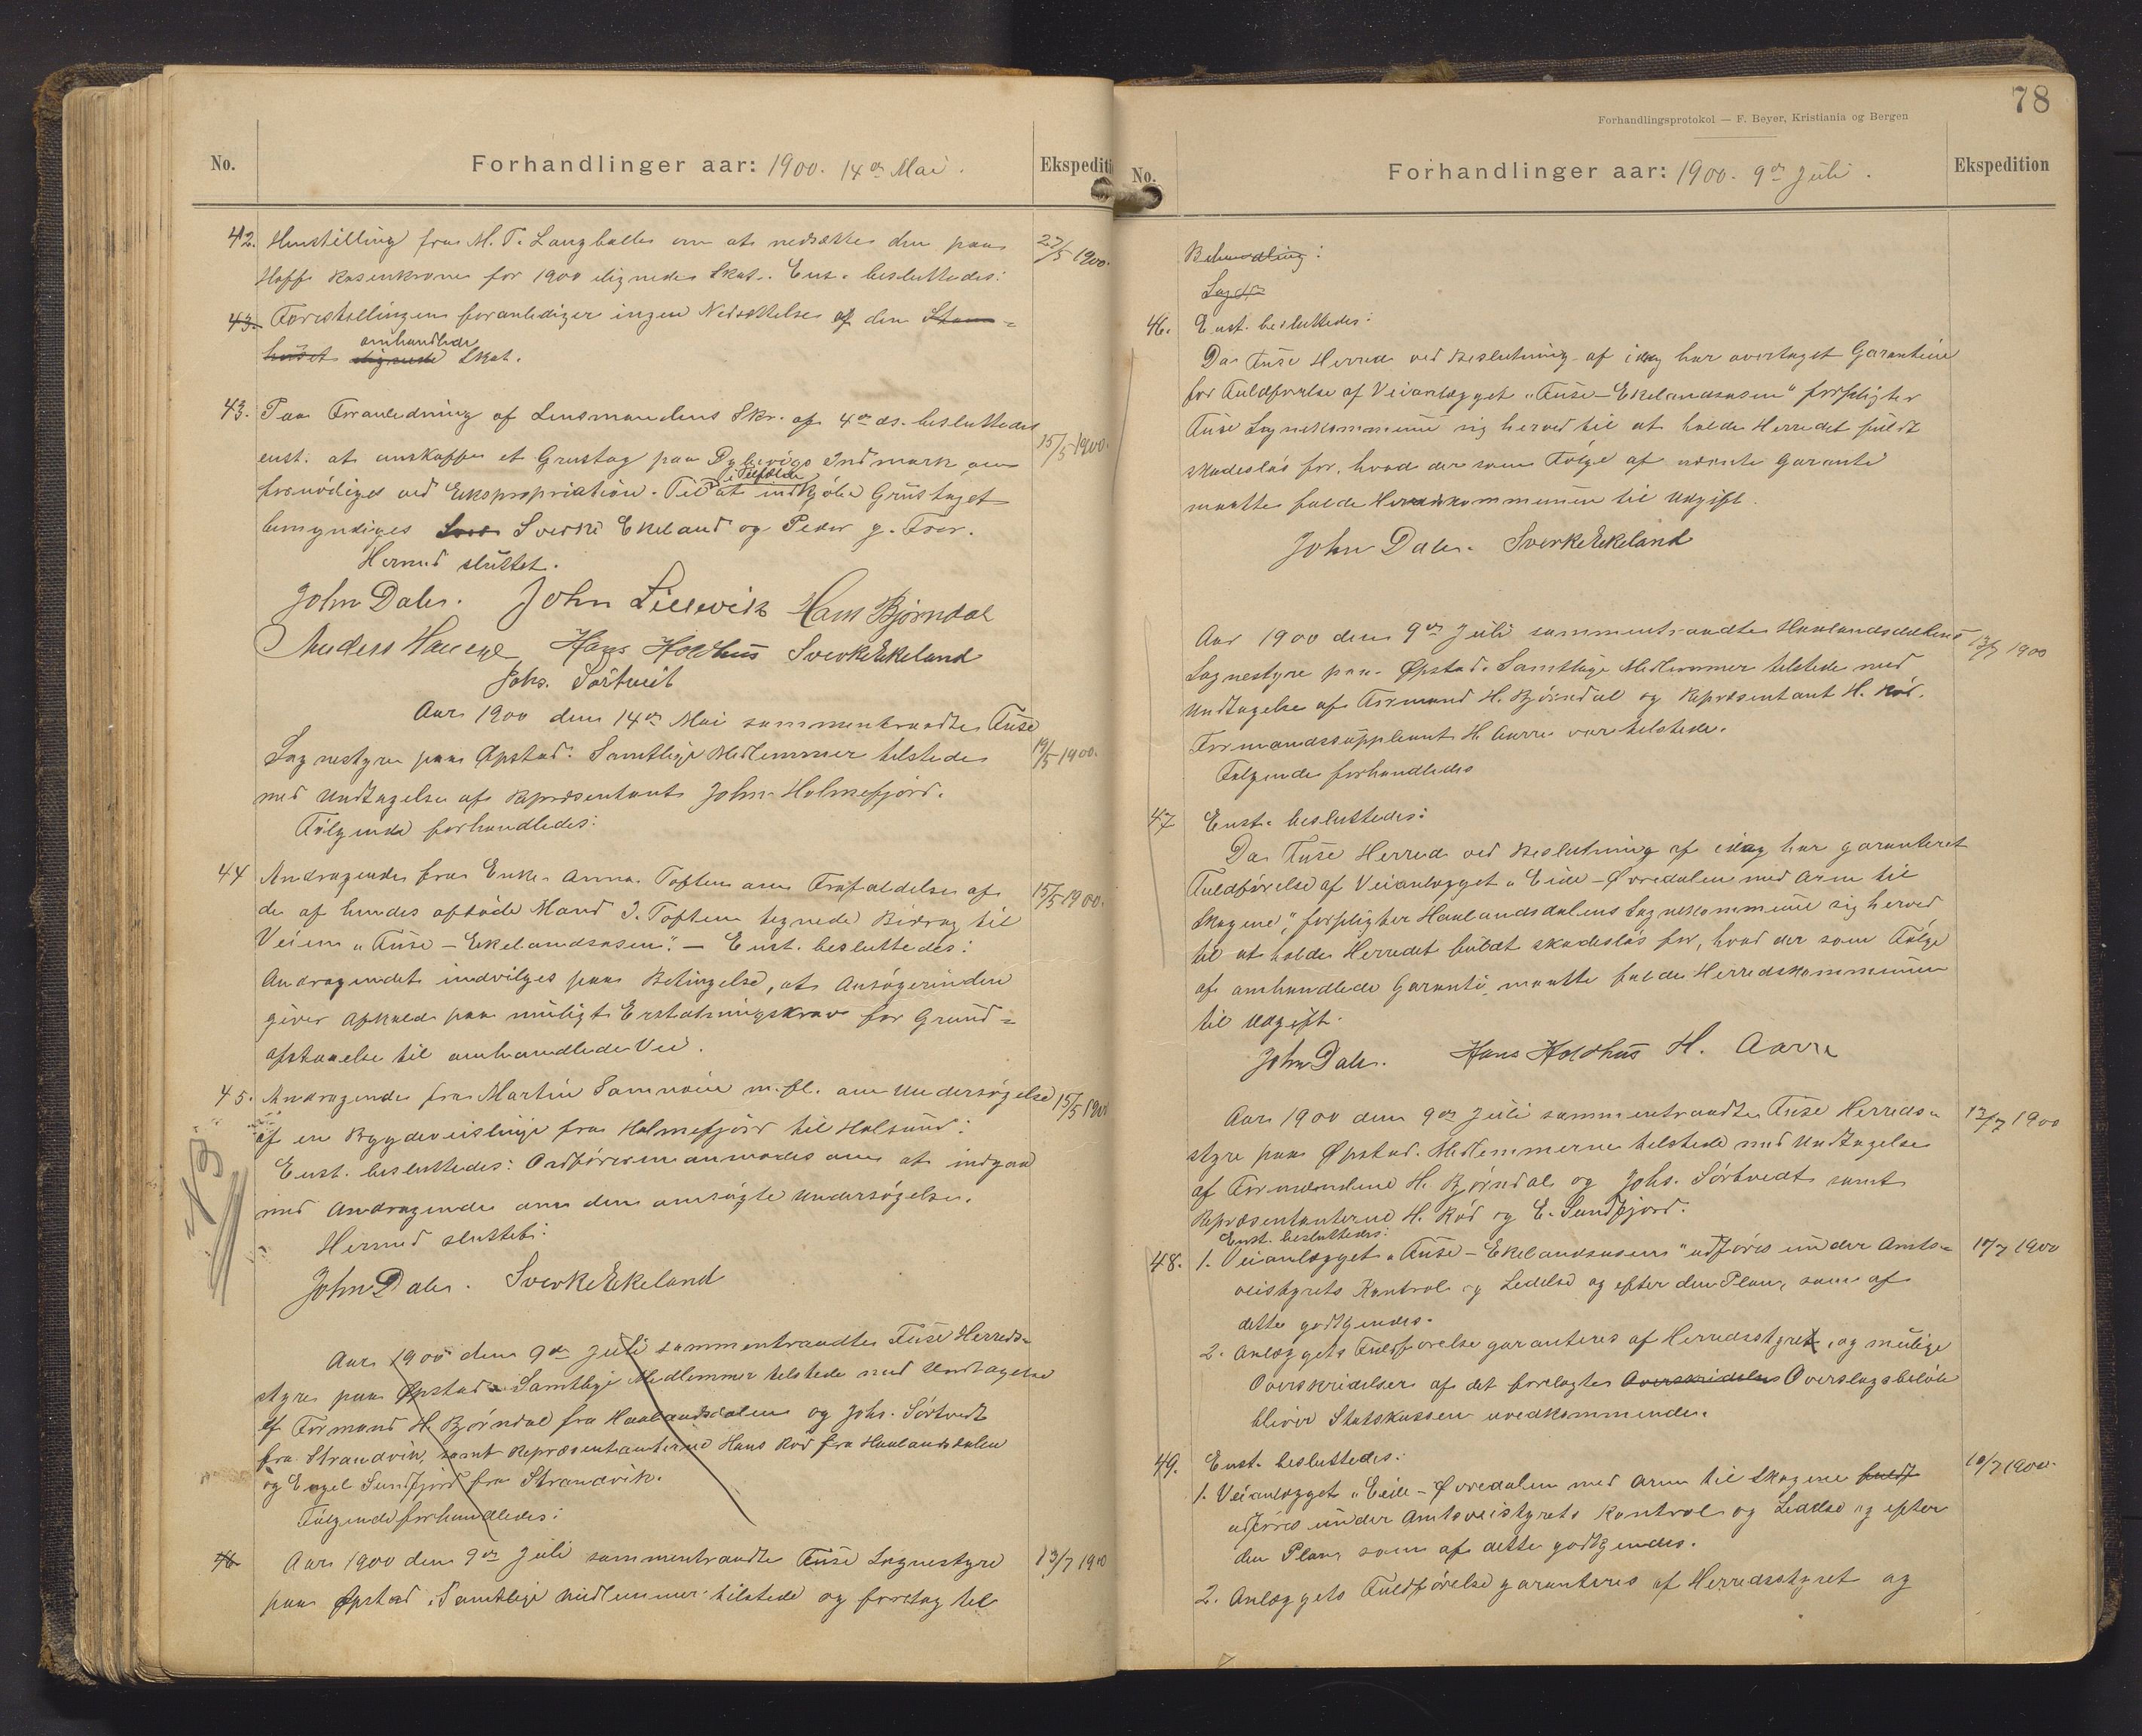 No.
Forhandlinger aar: 1900. 14de Mai.
Ekspediti
42. Henstilling fra M. T. Langballe om at nedsætte den paa
27/5 1900.
Hoff Rosenkrone for 1900 lignede Skat. Enst. besluttedes:
43. Forestillingen foranlediger ingen Nedsættelse af den
omhandlede
huset lignede Skat.
43. Paa Foranledning af Lensmandens Skr. af 4de ds. besluttedes
15/5 1900.
enst. at anskaffe et Grustag paa Indmark om
i Tilfælde
fornødiges ved Ekspropriation. Til at indkjøbe Grustaget
bemyndiges Sverke Ekeland og Peder
Hermed sluttet.
John Dale. John Lillevik Hans Bjørndal
Anders Hauge Hans Holdhus Sverke Ekeland
Johs. Sørtveit
Aar 1900 den 14de Mai sammentraadte Fuse
Sognestyre paa Øpstad. Samtlige Medlemmer tilstede
19/5 1900.
med Undtagelse af Repræsentant John Holmefjord.
Følgende forhandledes:
44 Andragende fra Enke Anna Toften om Frafaldelse af
15/5 1900.
de af hendes afdøde Mand J. Toften tegnede Bidrag til
Veien "Fuse – Ekelandsosen". – Enst. besluttedes:
Andragendet indvilges paa Betingelse, at Ansøgerinden
giver Afkald paa muligt Erstatningskrav for Grund=
afstaaelse til omhandlede Vei.
45. Andragende fra Martin Samnøen m.fl. om Undersøgelse
15/5 1900
af en Bygdeveislinje fra Holmefjord til Holsund:
Enst. besluttedes: Ordføreren anmodes om at indgaa
med Andragende om den ansøgte Undersøgelse.
Hermed sluttet:
John Dale. Sverke Ekeland
Aar 1900 den 9de Juli sammentraadte Fuse Herreds=
styre paa Øpstad. Samtlige Medlemmer tilstede med Undtagelse
af Formand H. Bjørndal fra Haalandsdalen og Johs. Sørtvedt
fra Strandvik, samt Repræsentanterne Hans Rød fra Haalandsdalen
og Engel Sundfjord fra Strandvik.
Følgende forhandledes:
46 Aar 1900 den 9de Juli sammentraadte Fuse Sognestyre
13/7 1900
paa Øpstad. Samtlige Medlemmer tilstede og foretog til
78
Forhandlingsprotokol — F. Beyer, Kristiania og Bergen
No.
Forhandlinger aar: 1900. 9de Juli.
Ekspedition
Behandling:
46. Enst. besluttedes:
Da Fuse Herred ved Beslutning af idag har overtaget Garantien
for Fuldførelse af Veianlægget "Fuse – Ekelandsosen" forpligter
Fuse Sognekommune sig herved til at holde Herredet fuldt
skadesløs for, hvad der som Følge af nævnte Garanti
maatte falde Herredskommunen til Udgift.
John Dale. Sverke Ekeland
Aar 1900 den 9de Juli sammentraadte Haalandsdalens
13/7 1900
Sognestyre paa Øpstad. Samtlige Medlemmer tilstede med
Undtagelse af Formand H. Bjørndal og Repræsentant H. Rød.
Formandssuppleant H. Aarre var tilstede.
Følgende forhandledes
47 Enst. besluttedes:
Da Fuse Herred ved Beslutning af idag har garanteret
Fuldførelse af Veianlægget "Eide – Øvredalen med Arm til
Skogene", forpligter Haalandsdalens Sognekommune sig herved
til at holde Herredet fuldt skadesløs for, hvad der som Følge
af omhandlede Garanti maatte falde Herredskommunen
til Udgift.
John Dale. Hans Holdhus H. Aarre
Aar 1900 den 9de Juli sammentraadte Fuse Herreds=
13/7 1900
styre paa Øpstad. Medlemmerne tilstede med Undtagelse
af Formændene H. Bjørndal og Johs. Sørtvedt samt
Repræsentanterne H. Rød og E. Sundfjord.
Enst. besluttedes:
48. 1. Veianlægget "Fuse – Ekelandsosen" udføres under Amts=
10/7 1900
veistyrets Kontrol og Ledelse og efter den Plan, som af
dette godkjendes.
2. Anlæggets Fuldførelse garanteres af Herredsstyret, og mulige
Overskridelser af det forelagte Overskridelse Overslagsbeløb
bliver Statskassen uvedkommende.
49. Enst. besluttedes:
10/7 1900.
1. Veianlægget "Eide – Øvredalen med Arm til Skogene fuldf
udføres under Amtsveistyrets Kontrol og Ledelse og efter
den Plan som af dette godkjendes.
2. Anlæggets Fuldførelse garanteres af Herredsstyret og